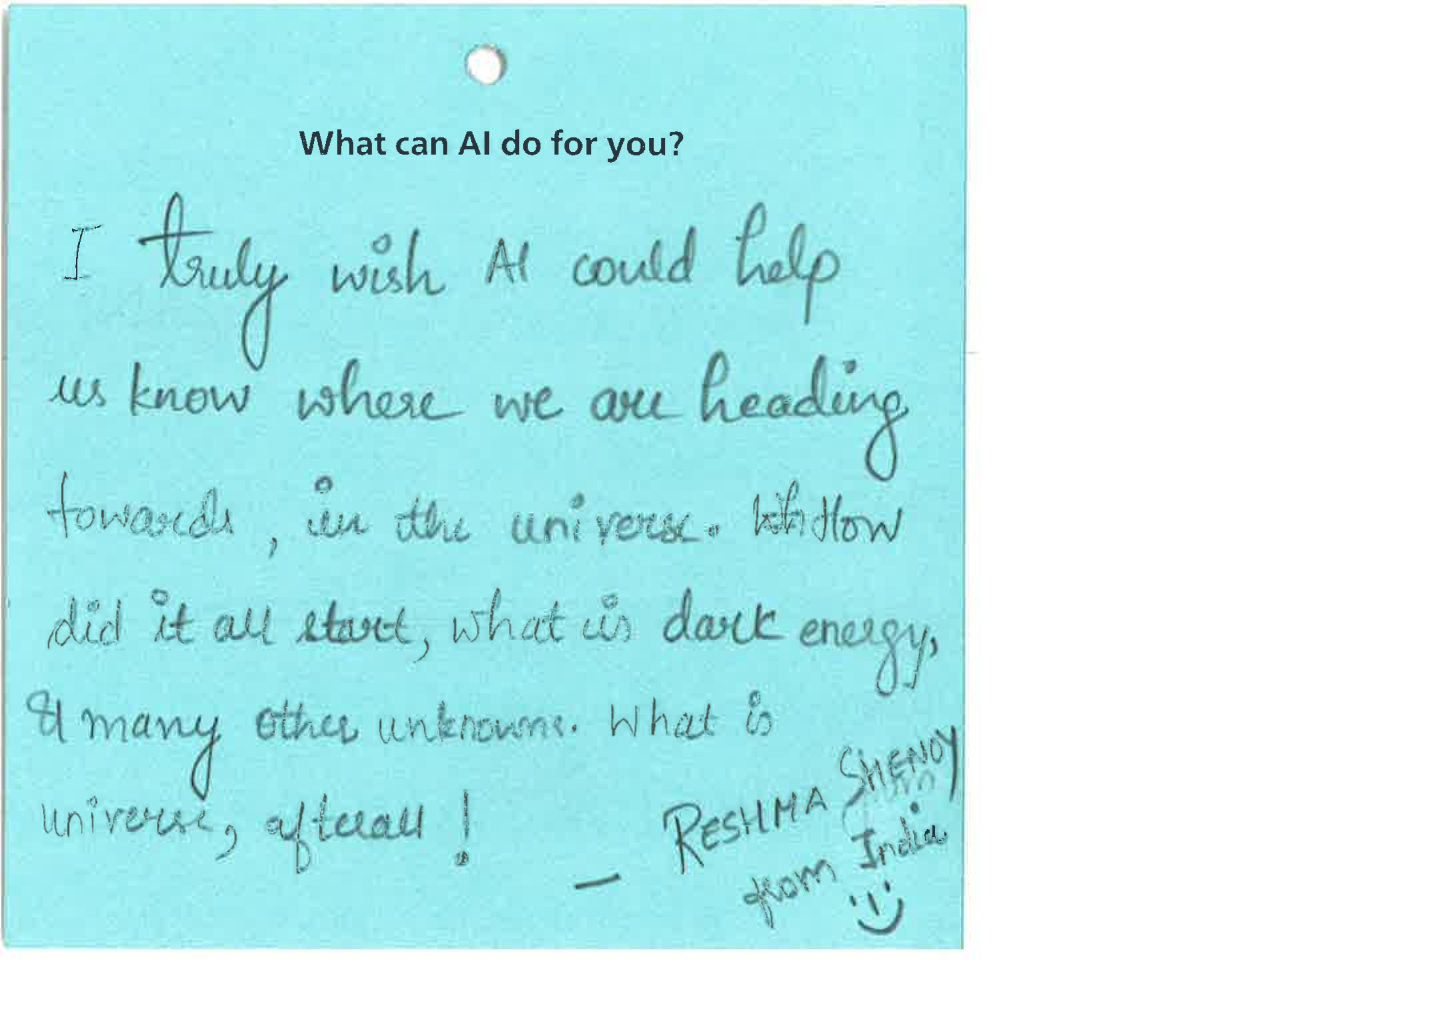 What can AI do for you?
I truly wish AI could help
us know where we are heading
towards, in the universe. How
did it all start, what is dark energy,
& many other unknowns. What is
universe, afterall!
— RESHMA SHENOY
from India